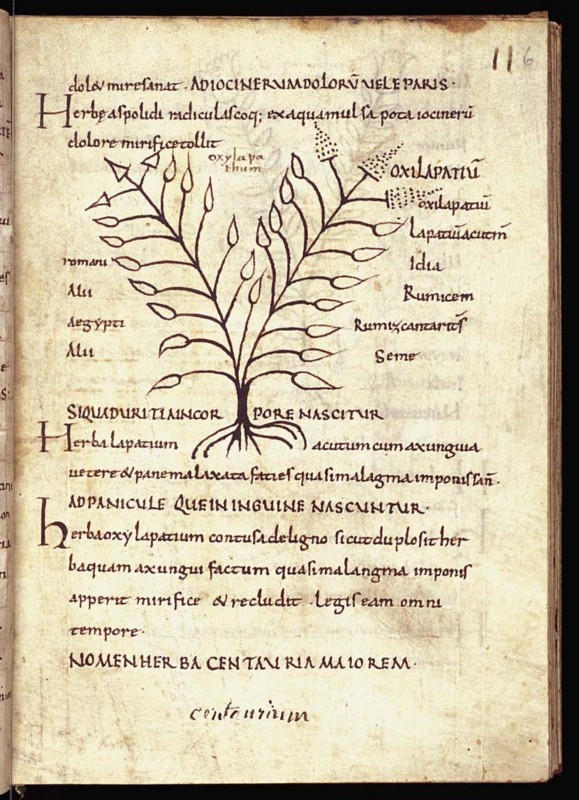 116
dolet mire sanat · AD IOCINERVM DOLORŪ VEL EPARIS ·
Herbe aspolidi radiculas coq; ex aqua mulsa pota iocinerū
dolore mirifice tollit
oxylapa
thum
OXILAPATIŪ
oxilapatiū
Lapatiū acutm̄
romani Idia
Alii Rumicem
Aegypti
Alii Seme
SI QUA DURITIA IN COR PORE NASCITUR
Herba lapatium acutum cum axungia
vetere & pane malaxata facies quasi malagma imponis san̄ ·
AD PANICULE QUE IN INGUINE NASCUNTUR ·
herba oxylapatium contusa de ligno sicut duplosit her
baquam axungui factum quasi malangma imponis
apperit mirifice & recludit · Legis eam omni
tempore ·
NOMEN HERBA CENTAURIA MAIOREM ·
centaurium